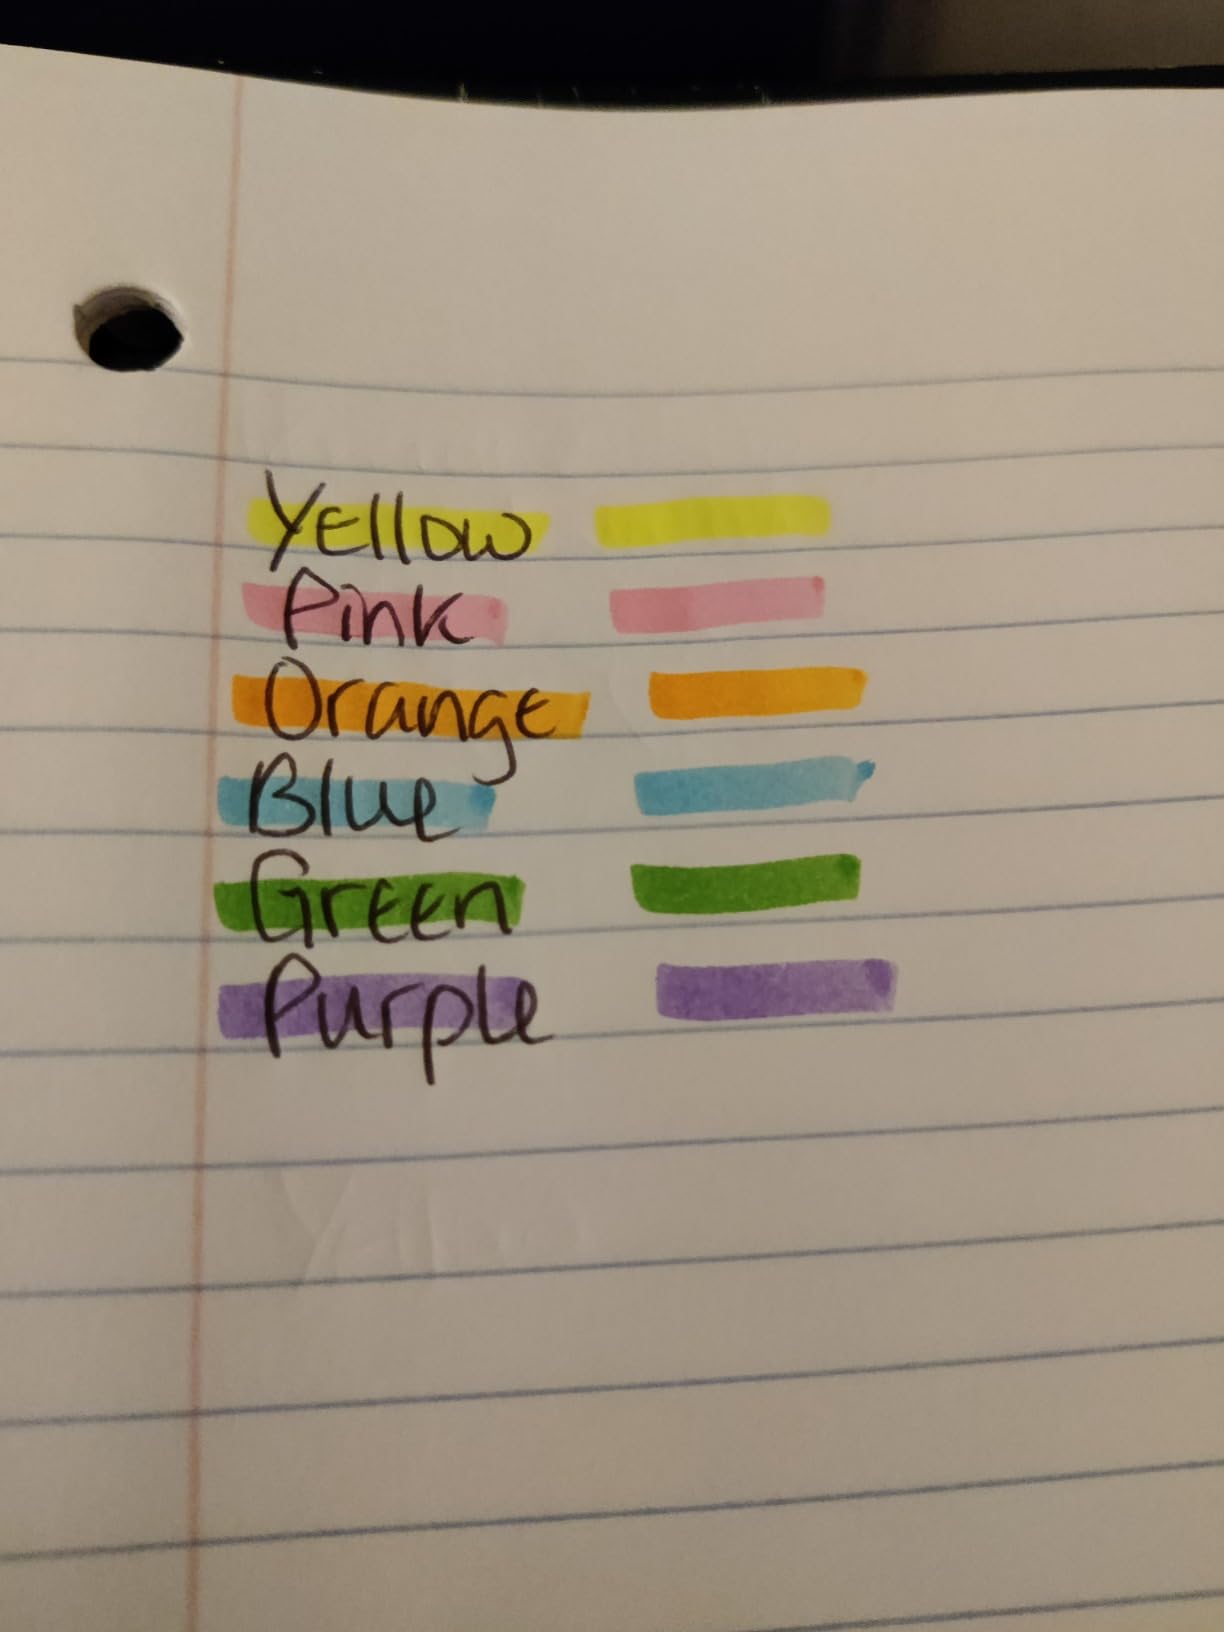 Yellow
Pink
Orange
Blue
Green
Purple